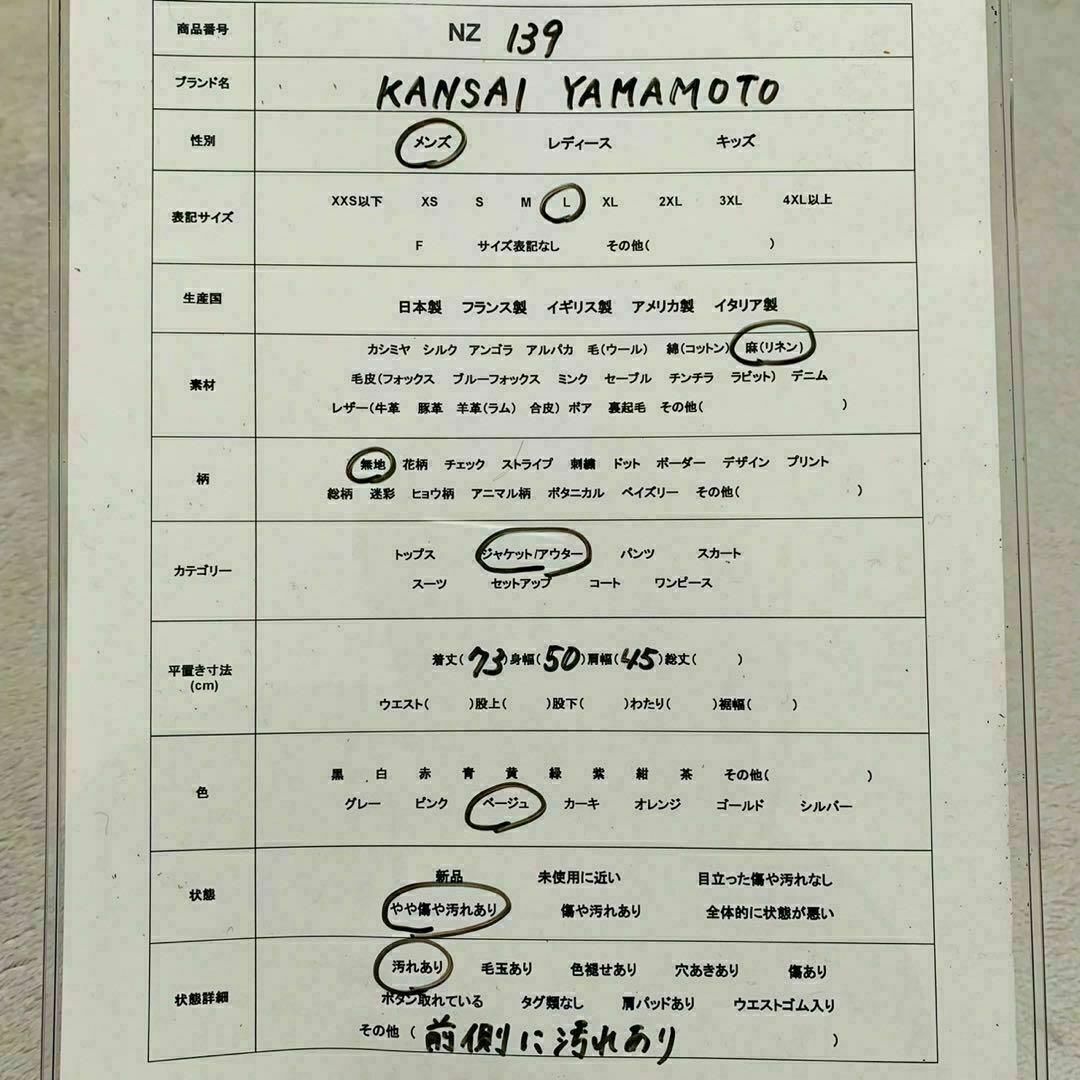 商品番号 NZ 139
ブランド名 KANSAI YAMAMOTO
性別 メンズ レディース キッズ
表記サイズ XXS以下 XS S M L XL 2XL 3XL 4XL以上
F サイズ表記なし その他( )
生産国 日本製 フランス製 イギリス製 アメリカ製 イタリア製
素材 カシミヤ シルク アンゴラ アルパカ 毛(ウール) 綿(コットン) 麻(リネン)
毛皮(フォックス ブルーフォックス ミンク セーブル チンチラ ラビット) デニム
レザー(牛革 豚革 羊革(ラム) 合皮) ボア 裏起毛 その他( )
柄 無地 花柄 チェック ストライプ 刺繍 ドット ボーダー デザイン プリント
総柄 迷彩 ヒョウ柄 アニマル柄 ボタニカル ペイズリー その他( )
カテゴリー トップス ジャケット/アウター パンツ スカート
スーツ セットアップ コート ワンピース
平置き寸法 (cm) 着丈(73)身幅(50)肩幅(45)総丈( )
ウエスト( )股上( )股下( )わたり( )裾幅( )
色 黒 白 赤 青 黄 緑 紫 紺 茶 その他( )
グレー ピンク ベージュ カーキ オレンジ ゴールド シルバー
状態 新品 未使用に近い 目立った傷や汚れなし
やや傷や汚れあり 傷や汚れあり 全体的に状態が悪い
状態詳細 汚れあり 毛玉あり 色褪せあり 穴あきあり 傷あり
ボタン取れている タグ類なし 肩パッドあり ウエストゴム入り
その他 ( 前側に汚れあり )